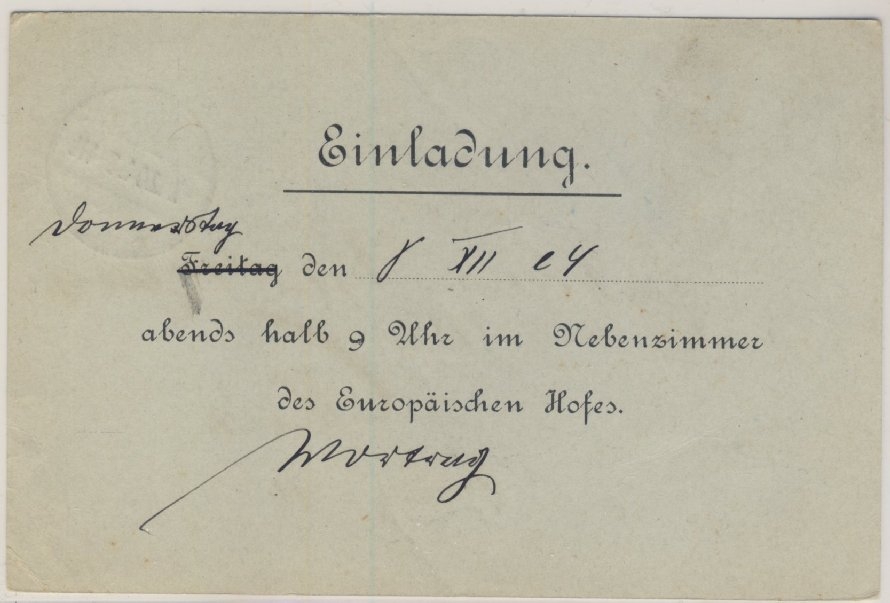 Einladung.
Donnerstag
Freitag den 8 XII 04
abends halb 9 Uhr im Nebenzimmer
des Europäischen Hofes.
Vortrag